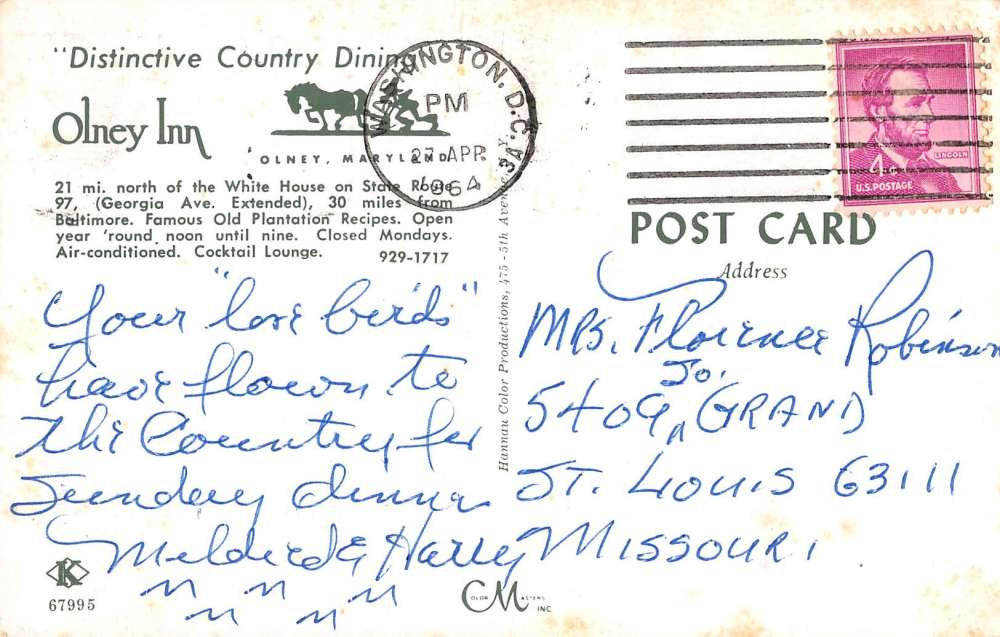 "Distinctive Country Dining
Olney Inn
OLNEY, MARYLAND
21 mi. north of the White House on State Route
97, (Georgia Ave. Extended), 30 miles from
Baltimore. Famous Old Plantation Recipes. Open
year 'round noon until nine. Closed Mondays.
Air-conditioned. Cocktail Lounge. 929-1717
WASHINGTON, D.C.
PM
27 APR
1964
3A
4¢
LINCOLN
U.S. POSTAGE
POST CARD
Address
Hannau Color Productions, 475 - 5th Avenue, N.Y.
Your "love birds"
have flown to
the Country for
Sunday dinner
Mildred & Harry
Mrs. Florence Robinson
So.
5409 ^ GRAND
ST. LOUIS 63111
MISSOURI
K
67995
COLOR MASTERS INC